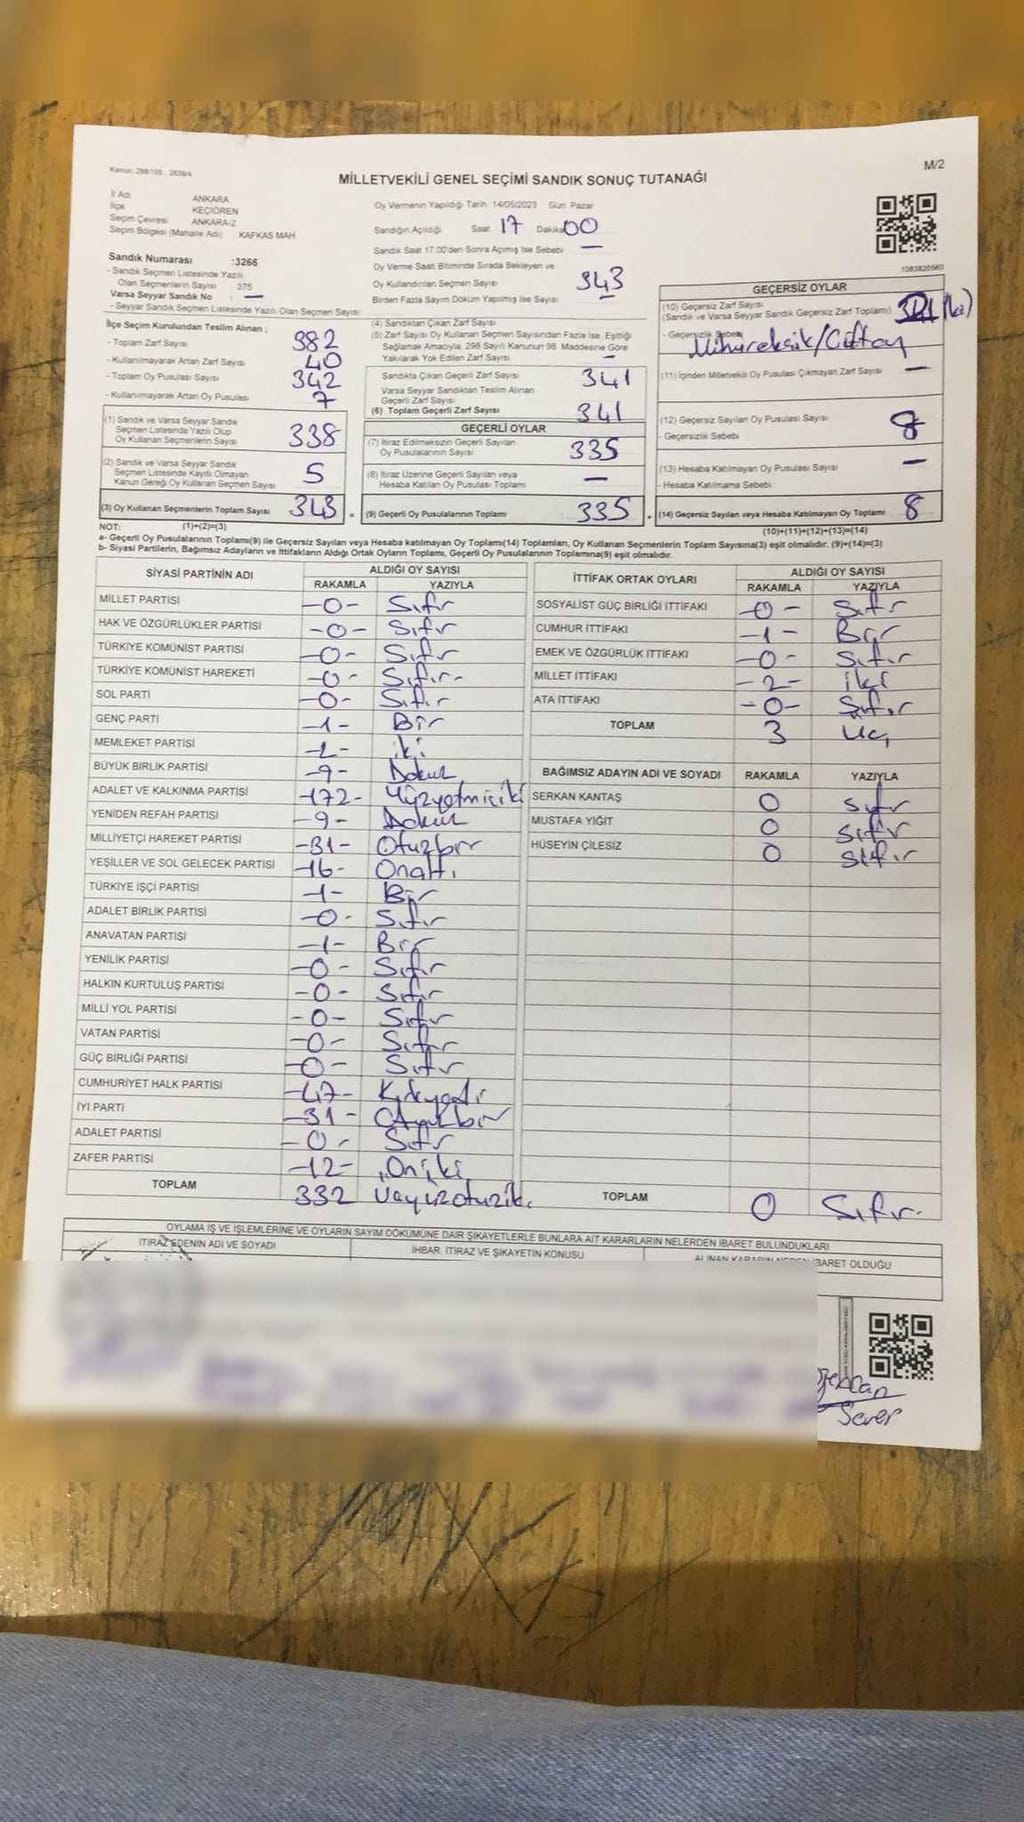 Kanun: 298/105, 2839/4
M/2
MİLLETVEKİLİ GENEL SEÇİMİ SANDIK SONUÇ TUTANAĞI
İl Adı ANKARA
İlçe KEÇİÖREN
Seçim Çevresi ANKARA-2
Seçim Bölgesi (Mahalle Adı) KAFKAS MAH.
Sandık Numarası :3266
- Sandık Seçmen Listesinde Yazılı
Olan Seçmenlerin Sayısı 375
Varsa Seyyar Sandık No : —
- Seyyar Sandık Seçmen Listesinde Yazılı Olan Seçmen Sayısı
Oy Vermenin Yapıldığı Tarih 14/05/2023 Gün: Pazar
Sandığın Açıldığı Saat 17 Dakika 00
Sandık Saat 17.00'den Sonra Açılmış İse Sebebi —
Oy Verme Saati Bitiminde Sırada Bekleyen ve
Oy Kullandırılan Seçmen Sayısı 343
Birden Fazla Sayım Döküm Yapılmış İse Sayısı —
1083820560
İlçe Seçim Kurulundan Teslim Alınan ;
- Toplam Zarf Sayısı 382
- Kullanılmayarak Artan Zarf Sayısı 40
- Toplam Oy Pusulası Sayısı 342
- Kullanılmayarak Artan Oy Pusulası 7
(1) Sandık ve Varsa Seyyar Sandık
Seçmen Listesinde Yazılı Olup
Oy Kullanan Seçmenlerin Sayısı 338
(2) Sandık ve Varsa Seyyar Sandık
Seçmen Listesinde Kayıtlı Olmayan
Kanun Gereği Oy Kullanan Seçmen Sayısı 5
(3) Oy Kullanan Seçmenlerin Toplam Sayısı 343 =
(4) Sandıktan Çıkan Zarf Sayısı
(5) Zarf Sayısı Oy Kullanan Seçmen Sayısından Fazla İse, Eşitliği
Sağlamak Amacıyla, 298 Sayılı Kanunun 98. Maddesine Göre
Yakılarak Yok Edilen Zarf Sayısı —
Sandıkta Çıkan Geçerli Zarf Sayısı 341
Varsa Seyyar Sandıktan Teslim Alınan
Geçerli Zarf Sayısı
(6) Toplam Geçerli Zarf Sayısı 341
GEÇERLİ OYLAR
(7) İtiraz Edilmeksizin Geçerli Sayılan
Oy Pusulalarının Sayısı 335
(8) İtiraz Üzerine Geçerli Sayılan veya
Hesaba Katılan Oy Pusulası Toplamı —
(9) Geçerli Oy Pusulalarının Toplamı 335
GEÇERSİZ OYLAR
(10) Geçersiz Zarf Sayısı
(Sandık ve Varsa Seyyar Sandık Geçersiz Zarf Toplamı)
- Geçersizlik Sebebi
(11) İçinden Milletvekili Oy Pusulası Çıkmayan Zarf Sayısı —
(12) Geçersiz Sayılan Oy Pusulası Sayısı 8
- Geçersizlik Sebebi
(13) Hesaba Katılmayan Oy Pusulası Sayısı —
- Hesaba Katılmama Sebebi
(14) Geçersiz Sayılan veya Hesaba Katılmayan Oy Toplamı 8
NOT: (1)+(2)=(3) (10)+(11)+(12)+(13)=(14)
a- Geçerli Oy Pusulalarının Toplamı(9) ile Geçersiz Sayılan veya Hesaba katılmayan Oy Toplamı(14) Toplamları, Oy Kullanan Seçmenlerin Toplam Sayısına(3) eşit olmalıdır. (9)+(14)=(3)
b- Siyasi Partilerin, Bağımsız Adayların ve İttifakların Aldığı Ortak Oyların Toplamı, Geçerli Oy Pusulalarının Toplamına(9) eşit olmalıdır.
SİYASİ PARTİNİN ADI ALDIĞI OY SAYISI
RAKAMLA YAZIYLA
MİLLET PARTİSİ -0- Sıfır
HAK VE ÖZGÜRLÜKLER PARTİSİ -0- Sıfır
TÜRKİYE KOMÜNİST PARTİSİ -0- Sıfır
TÜRKİYE KOMÜNİST HAREKETİ -0- Sıfır
SOL PARTİ -0- Sıfır
GENÇ PARTİ -1- Bir
MEMLEKET PARTİSİ -2- iki
BÜYÜK BİRLİK PARTİSİ -9- Dokuz
ADALET VE KALKINMA PARTİSİ -172- Yüzyetmişiki
YENİDEN REFAH PARTİSİ -9- Dokuz
MİLLİYETÇİ HAREKET PARTİSİ -31- Otuzbir
YEŞİLLER VE SOL GELECEK PARTİSİ -16- Onaltı
TÜRKİYE İŞÇİ PARTİSİ -1- Bir
ADALET BİRLİK PARTİSİ -0- Sıfır
ANAVATAN PARTİSİ -1- Bir
YENİLİK PARTİSİ -0- Sıfır
HALKIN KURTULUŞ PARTİSİ -0- Sıfır
MİLLİ YOL PARTİSİ -0- Sıfır
VATAN PARTİSİ -0- Sıfır
GÜÇ BİRLİĞİ PARTİSİ -0- Sıfır
CUMHURİYET HALK PARTİSİ -47- Kırkyedi
İYİ PARTİ -31- Otuzbir
ADALET PARTİSİ -0- Sıfır
ZAFER PARTİSİ -12- Oniki
TOPLAM 332 Üçyüzotuziki
İTTİFAK ORTAK OYLARI ALDIĞI OY SAYISI
RAKAMLA YAZIYLA
SOSYALİST GÜÇ BİRLİĞİ İTTİFAKI -0- Sıfır
CUMHUR İTTİFAKI -1- Bir
EMEK VE ÖZGÜRLÜK İTTİFAKI -0- Sıfır
MİLLET İTTİFAKI -2- iki
ATA İTTİFAKI -0- Sıfır
TOPLAM 3 Üç
BAĞIMSIZ ADAYIN ADI VE SOYADI RAKAMLA YAZIYLA
SERKAN KANTAŞ 0 Sıfır
MUSTAFA YİĞİT 0 Sıfır
HÜSEYİN ÇİLESİZ 0 Sıfır
TOPLAM 0 Sıfır
OYLAMA İŞ VE İŞLEMLERİNE VE OYLARIN SAYIM DÖKÜMÜNE DAİR ŞİKAYETLERLE BUNLARA AİT KARARLARIN NELERDEN İBARET BULUNDUKLARI
İTİRAZ EDENİN ADI VE SOYADI İHBAR, İTİRAZ VE ŞİKAYETİN KONUSU
Sever